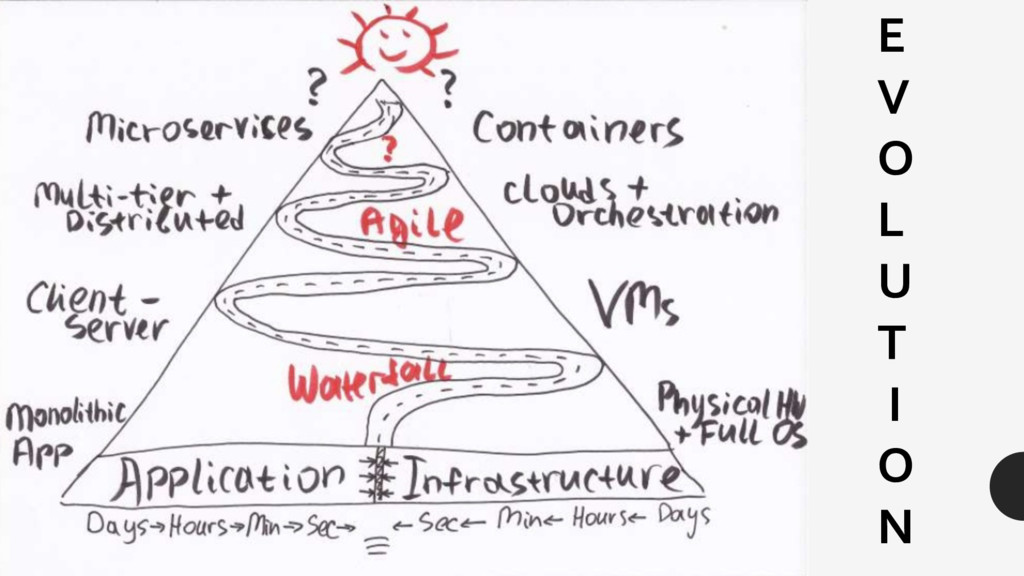 ?
?
Microservices
Containers
?
Multi-tier +
Distributed
Clouds +
Orchestration
Agile
Client -
Server
VMs
Waterfall
Monolithic
App
Physical HW
+ Full OS
Application
Infrastructure
Days→Hours→Min→Sec→
←Sec← Min← Hours← Days
EVOLUTION